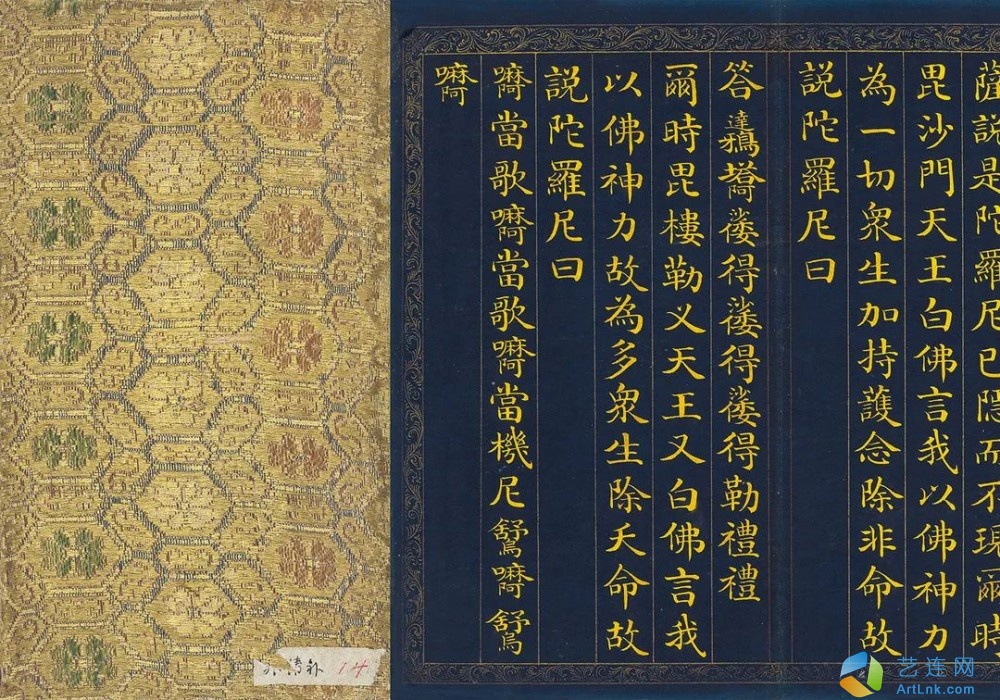 薩說是陀羅尼已隱而不現爾時
毘沙門天王白佛言我以佛神力
為一切衆生加持護念除非命故
説陀羅尼曰
答達鵶𡄸蔞得蔞得蔞得勒禮禮
爾時毘樓勒义天王又白佛言我
以佛神力故為多衆生除夭命故
説陀羅尼曰
當歌當歌當機尼
14
艺连网
ArtLnk.com